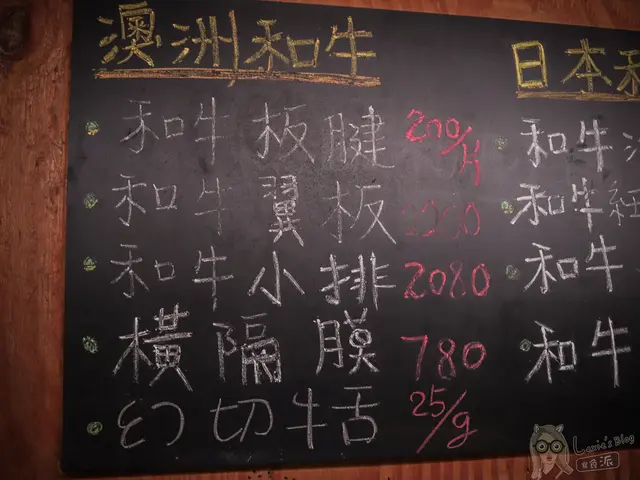 澳洲和牛
和牛板腱 200/片
和牛翼板
和牛小排 2080
橫隔膜 780
幻切牛舌 25/g
日本
和牛
和牛
和牛
和牛
Blog